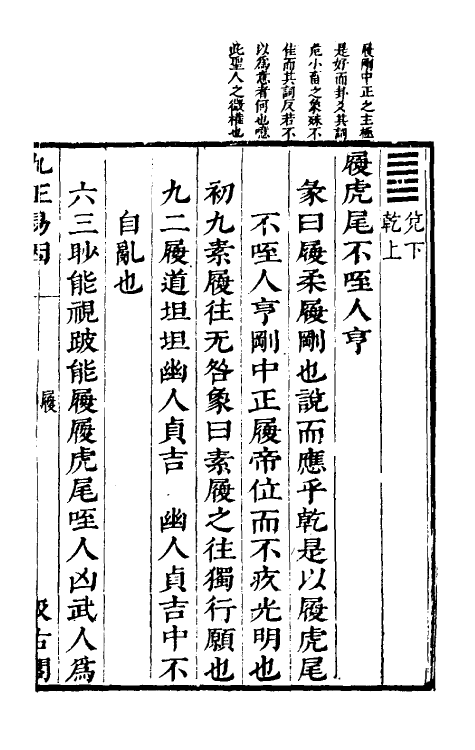 履剛中正之主極
是好而卦爻其詞
危小畜之象殊不
佳而其詞反若不
以為意者何也噫
此聖人之微權也
兌下
乾上
履虎尾不咥人亨
彖曰履柔履剛也說而應乎乾是以履虎尾
不咥人亨剛中正履帝位而不疚光明也
初九素履往无咎象曰素履之往獨行願也
九二履道坦坦幽人貞吉　幽人貞吉中不
自亂也
六三眇能視跛能履履虎尾咥人凶武人為
九正易因
履
汲古閣